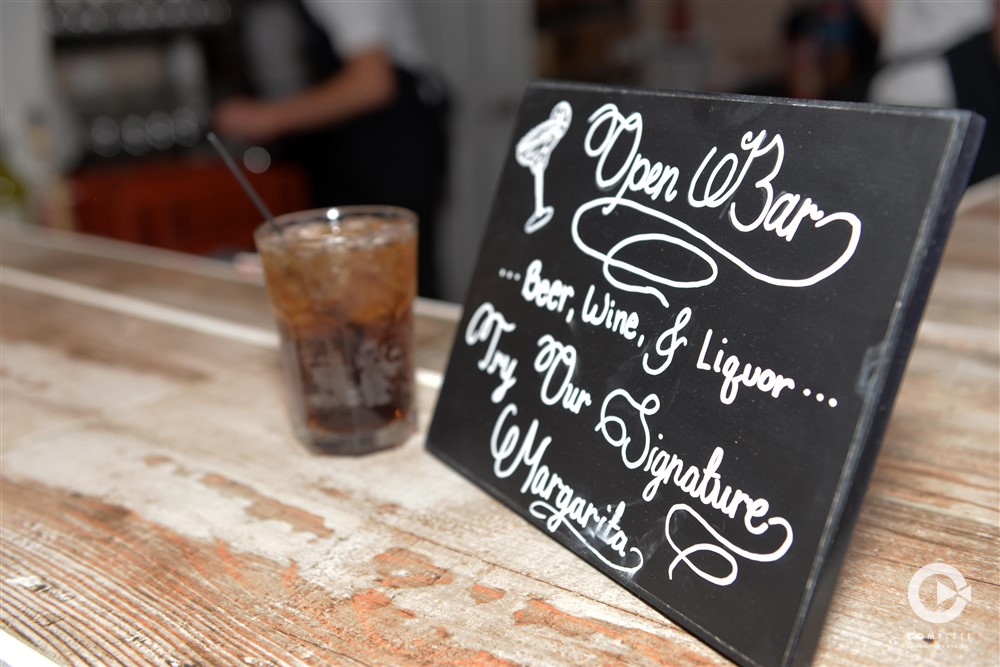 Open Bar
... Beer, Wine, & Liquor ...
Try Our Signature
Margarita
COMPLETE